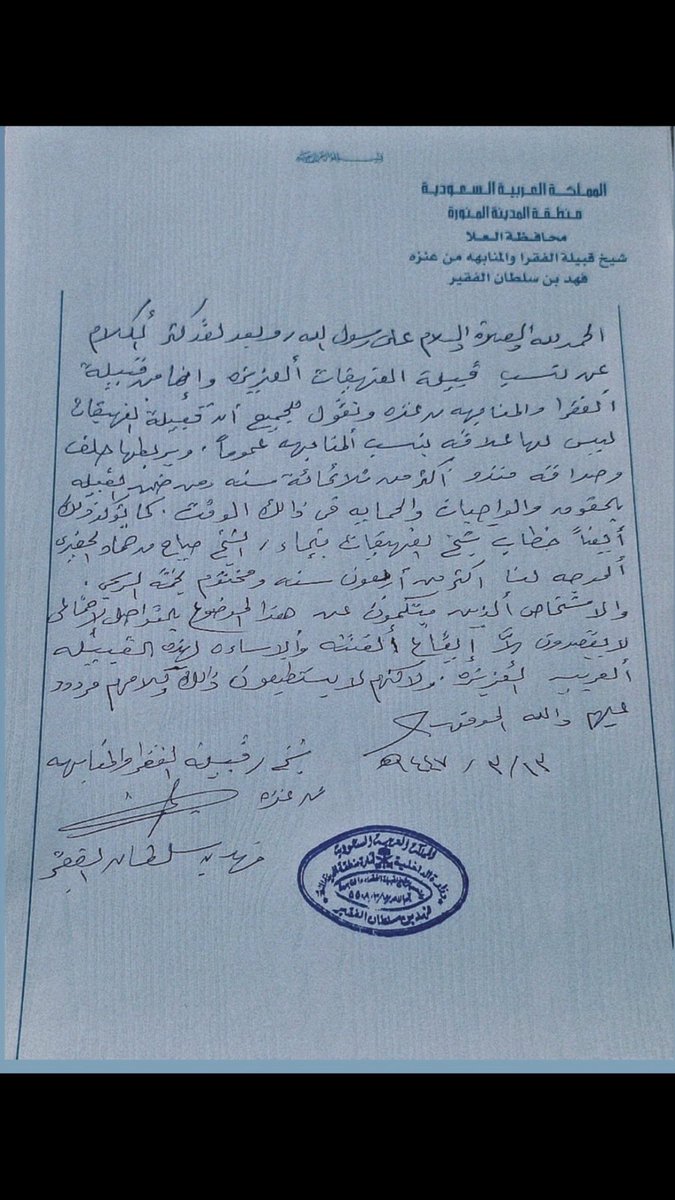 المملكة العربية السعودية
منطقة المدينة المنورة
محافظة العلا
شيخ قبيلة الفقرا والمنابهه من عنزه
فهد بن سلطان الفقير
الحمد لله والصلاة والسلام على رسول الله، وبعد لقد كثر الكلام
عن نسب قبيلة الفهيقات العزيزه وانها من قبيلة
الفقرا والمنابهه من عنزه ونقول للجميع أن قبيلة الفهيقات
ليس لها علاقه بنسب المنابهه عموماً. ويربطها حلف
وصداقه منذو أكثر من ثلاثمائة سنه من ضمن القبيله
بالحقوق والواجبات والحمايه في ذالك الوقت. كما يؤكد ذلك
أيضاً خطاب شيخ الفهيقات بتيماء، الشيخ صياح
الموجه لنا اكثر من أربعون سنه ومختوم بختمه الرسمي.
والاشخاص الذين يتكلمون عن هذا الموضوع بالتواصل الاجتماعي
لا يقصدون إلا إيقاع الفتنه والأساءه لهذه القبيله
العريبه العزيزه. ولاكنهم لا يستطيعون ذالك وكلامهم مردود
عليهم والله الموفق
١٣/٣/١٤٤٧هـ
شيخ قبيلة الفقرا والمنابهه
من عنزه
فهد بن سلطان الفقير
المملكة العربية السعودية
وزارة الداخلية
فهد بن سلطان الفقير